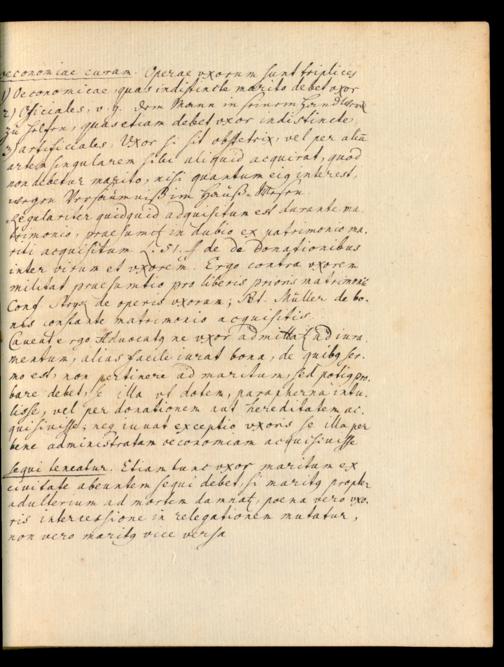 oeconomiae curam. Operae vxorum sunt triplices
1) Oeconomicae, quas indistincte marito debet vxor
2) Officiales, v. g. dem Mann in seinem Handwerck
zu helfen, quas etiam debet vxor indistincte,
3) artificiales. Vxor si sit obstetrix, vel per aliā
artem singularem sibi aliquid acquirat, quod
non debetur marito, nisi quantum eig interest,
wegen Versäumniß im Hauß-Wesen.
Regulariter quidquid adquisitum est durante ma
trimonio, praesumt in dubio ex patrimonio ma-
riti acquisitum l. 51. ff de de Donationibus
inter virum et vxorem. Ergo contra vxorem
militat praesumtio pro liberis prioris matrimonii
Conf. Stryk de operis vxorum; Pet. Müller de bo-
nis constante matrimonio acquisitis.
Caveat ergo Advocatg ne vxor admittat ad iura-
mentum, alias facile iurat bona, de quibg ser-
mo est, non pertinere ad maritum, sed potig pro-
bare debet, se illa vt dotem, parapherna intu-
lisse, vel per donationem aut hereditatem ac-
quisivisse, nec iuvat exceptio vxoris se illa per
bene administratam oeconomiam acquisivisse
sequi teneatur. Etiam tunc vxor maritum ex
civitate abeuntem sequi debet, si maritg propter
adulterium ad mortem damnat, poena vero vxo-
ris intercessione in relegationem mutatur,
non vero maritg vice versa